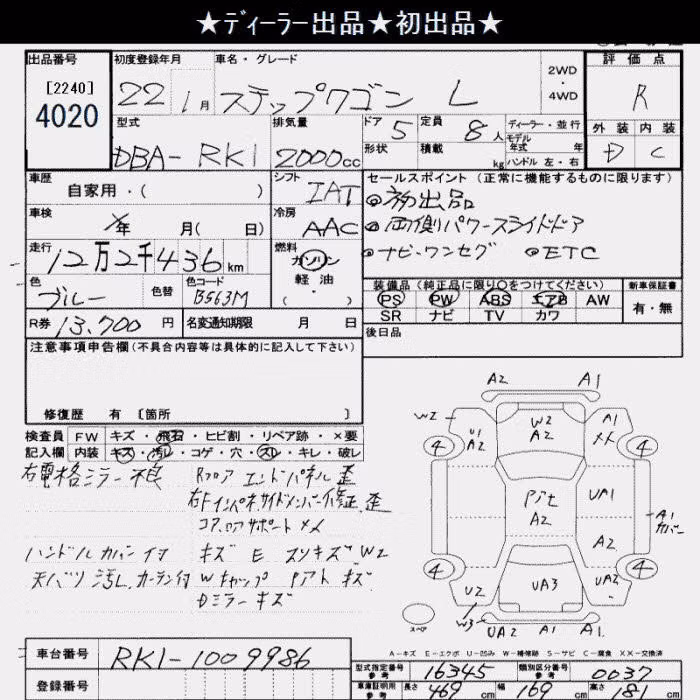 ★ディーラー出品★初出品★
出品番号
[2240]
4020
初度登録年月
22 1月
車名・グレード
ステップワゴン L
2WD
・
4WD
評価点
R
外装 内装
D C
型式
DBA-RK1
排気量
2000cc
ドア 5
定員 8人
形状
積載 kg
ディーラー・並行
モデル年式 年
ハンドル 左・右
車歴
自家用・( )
シフト
IAT
セールスポイント(正常に機能するものに限ります)
初出品
両側パワースライドドア
ナビ・ワンセグ ETC
車検
年 月( 日)
冷房
AAC
走行
12万2千436km
燃料
ガソリン
軽油
・
( )
色
ブルー
色替
色コード
B563M
装備品(純正品に限り○をつけてください)
PS PW ABS エアB AW
SR ナビ TV カワ
新車保証書
有・無
R券 13,700円
名変通知期限 月 日
後日品
注意事項申告欄(不具合内容等は具体的に記入して下さい)
修復歴 有 〔箇所 〕
検査員 FW キズ・飛石・ヒビ割・リペア跡・×要
記入欄 内装 キズ・汚レ・コゲ・穴・スレ・キレ・破レ
右電格ミラー不良
Rフロア エンドパネル 歪
右Fインパネ サイドメンバー修正、歪
コアサポート ××
ハンドルカバー付 キズ E スリキズ W2
天バリ汚レ カーテン付 Wキャップ キズ
Dミラーキズ
A2 A1
W2
U1
A2
W2
A2
A1
××
4 4
A2
UA1
A1
カバー
A2
4 4
U2
UA3
UA2
W3
UA2 A1 A1
スペア
A-キズ E-エクボ U-凹み W-補修跡 S-サビ C-腐食 XX-交換済
車台番号 RK1-1009986
登録番号
型式指定番号 参考 16345
類別区分番号 参考 0037
車庫証明用 参考 長さ 469cm 幅 169cm 高さ 181cm